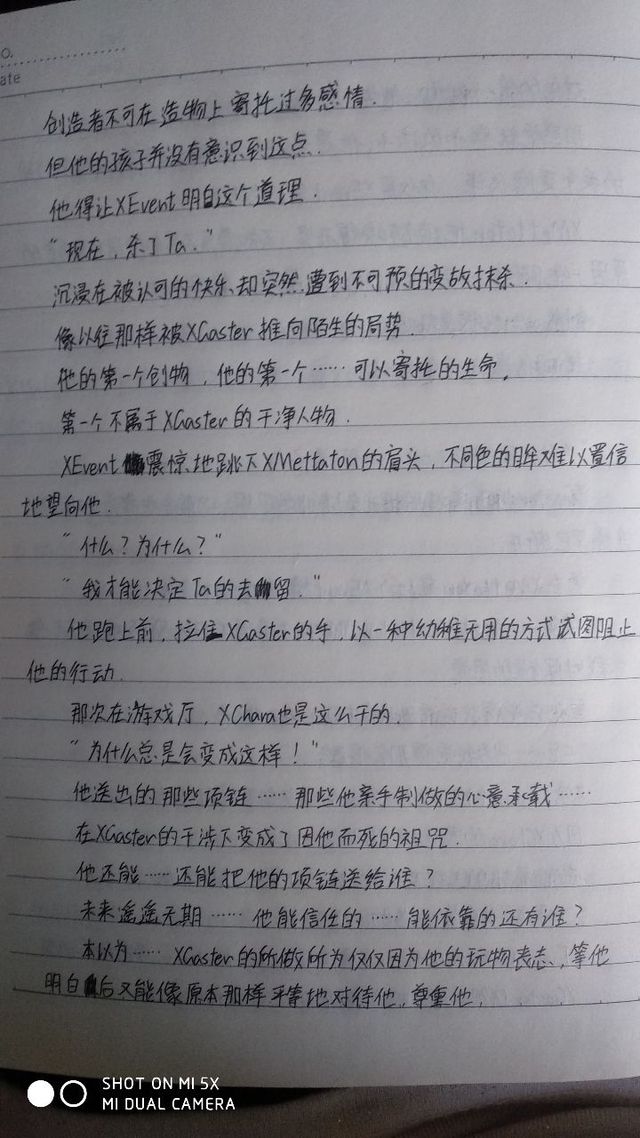 o.
ate
创造者不可在造物上寄托过多感情.
但他的孩子并没有意识到这点.
他得让XEvent明白这个道理.
"现在，杀了Ta."
沉浸在被认可的快乐、却突然遭到不可预的变故抹杀.
像以往那样被XGaster推向陌生的局势.
他的第一个创物，他的第一个……可以寄托的生命。
第一个不属于XGaster的干净人物.
XEvent震惊地跳下XMettaton的肩头，不同色的眸难以置信
地望向他.
"什么？为什么？"
"我才能决定Ta的去留."
他跑上前，拉住XGaster的手，以一种幼稚无用的方式试图阻止
他的行动.
那次在游戏厅，XChara也是这么干的.
"为什么总是会变成这样！"
他送出的那些项链……那些他亲手制做的心意承载……
在XGaster的干涉下变成了因他而死的诅咒.
他还能……还能把他的项链送给谁？
未来遥遥无期……他能信任的……能依靠的还有谁？
本以为……XGaster的所做所为仅仅因为他的玩物表态、等他
明白后又能像原本那样平等地对待他，尊重他，
SHOT ON MI 5X
MI DUAL CAMERA